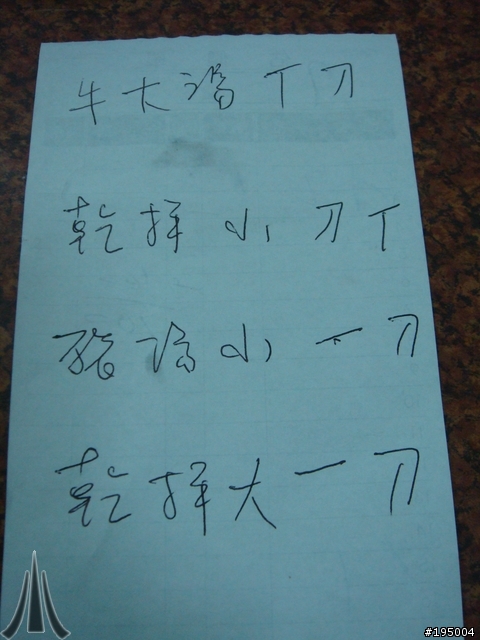 牛大湯丅刀
乾拌小刀丅
豬湯小一刀
乾拌大一刀
#195004